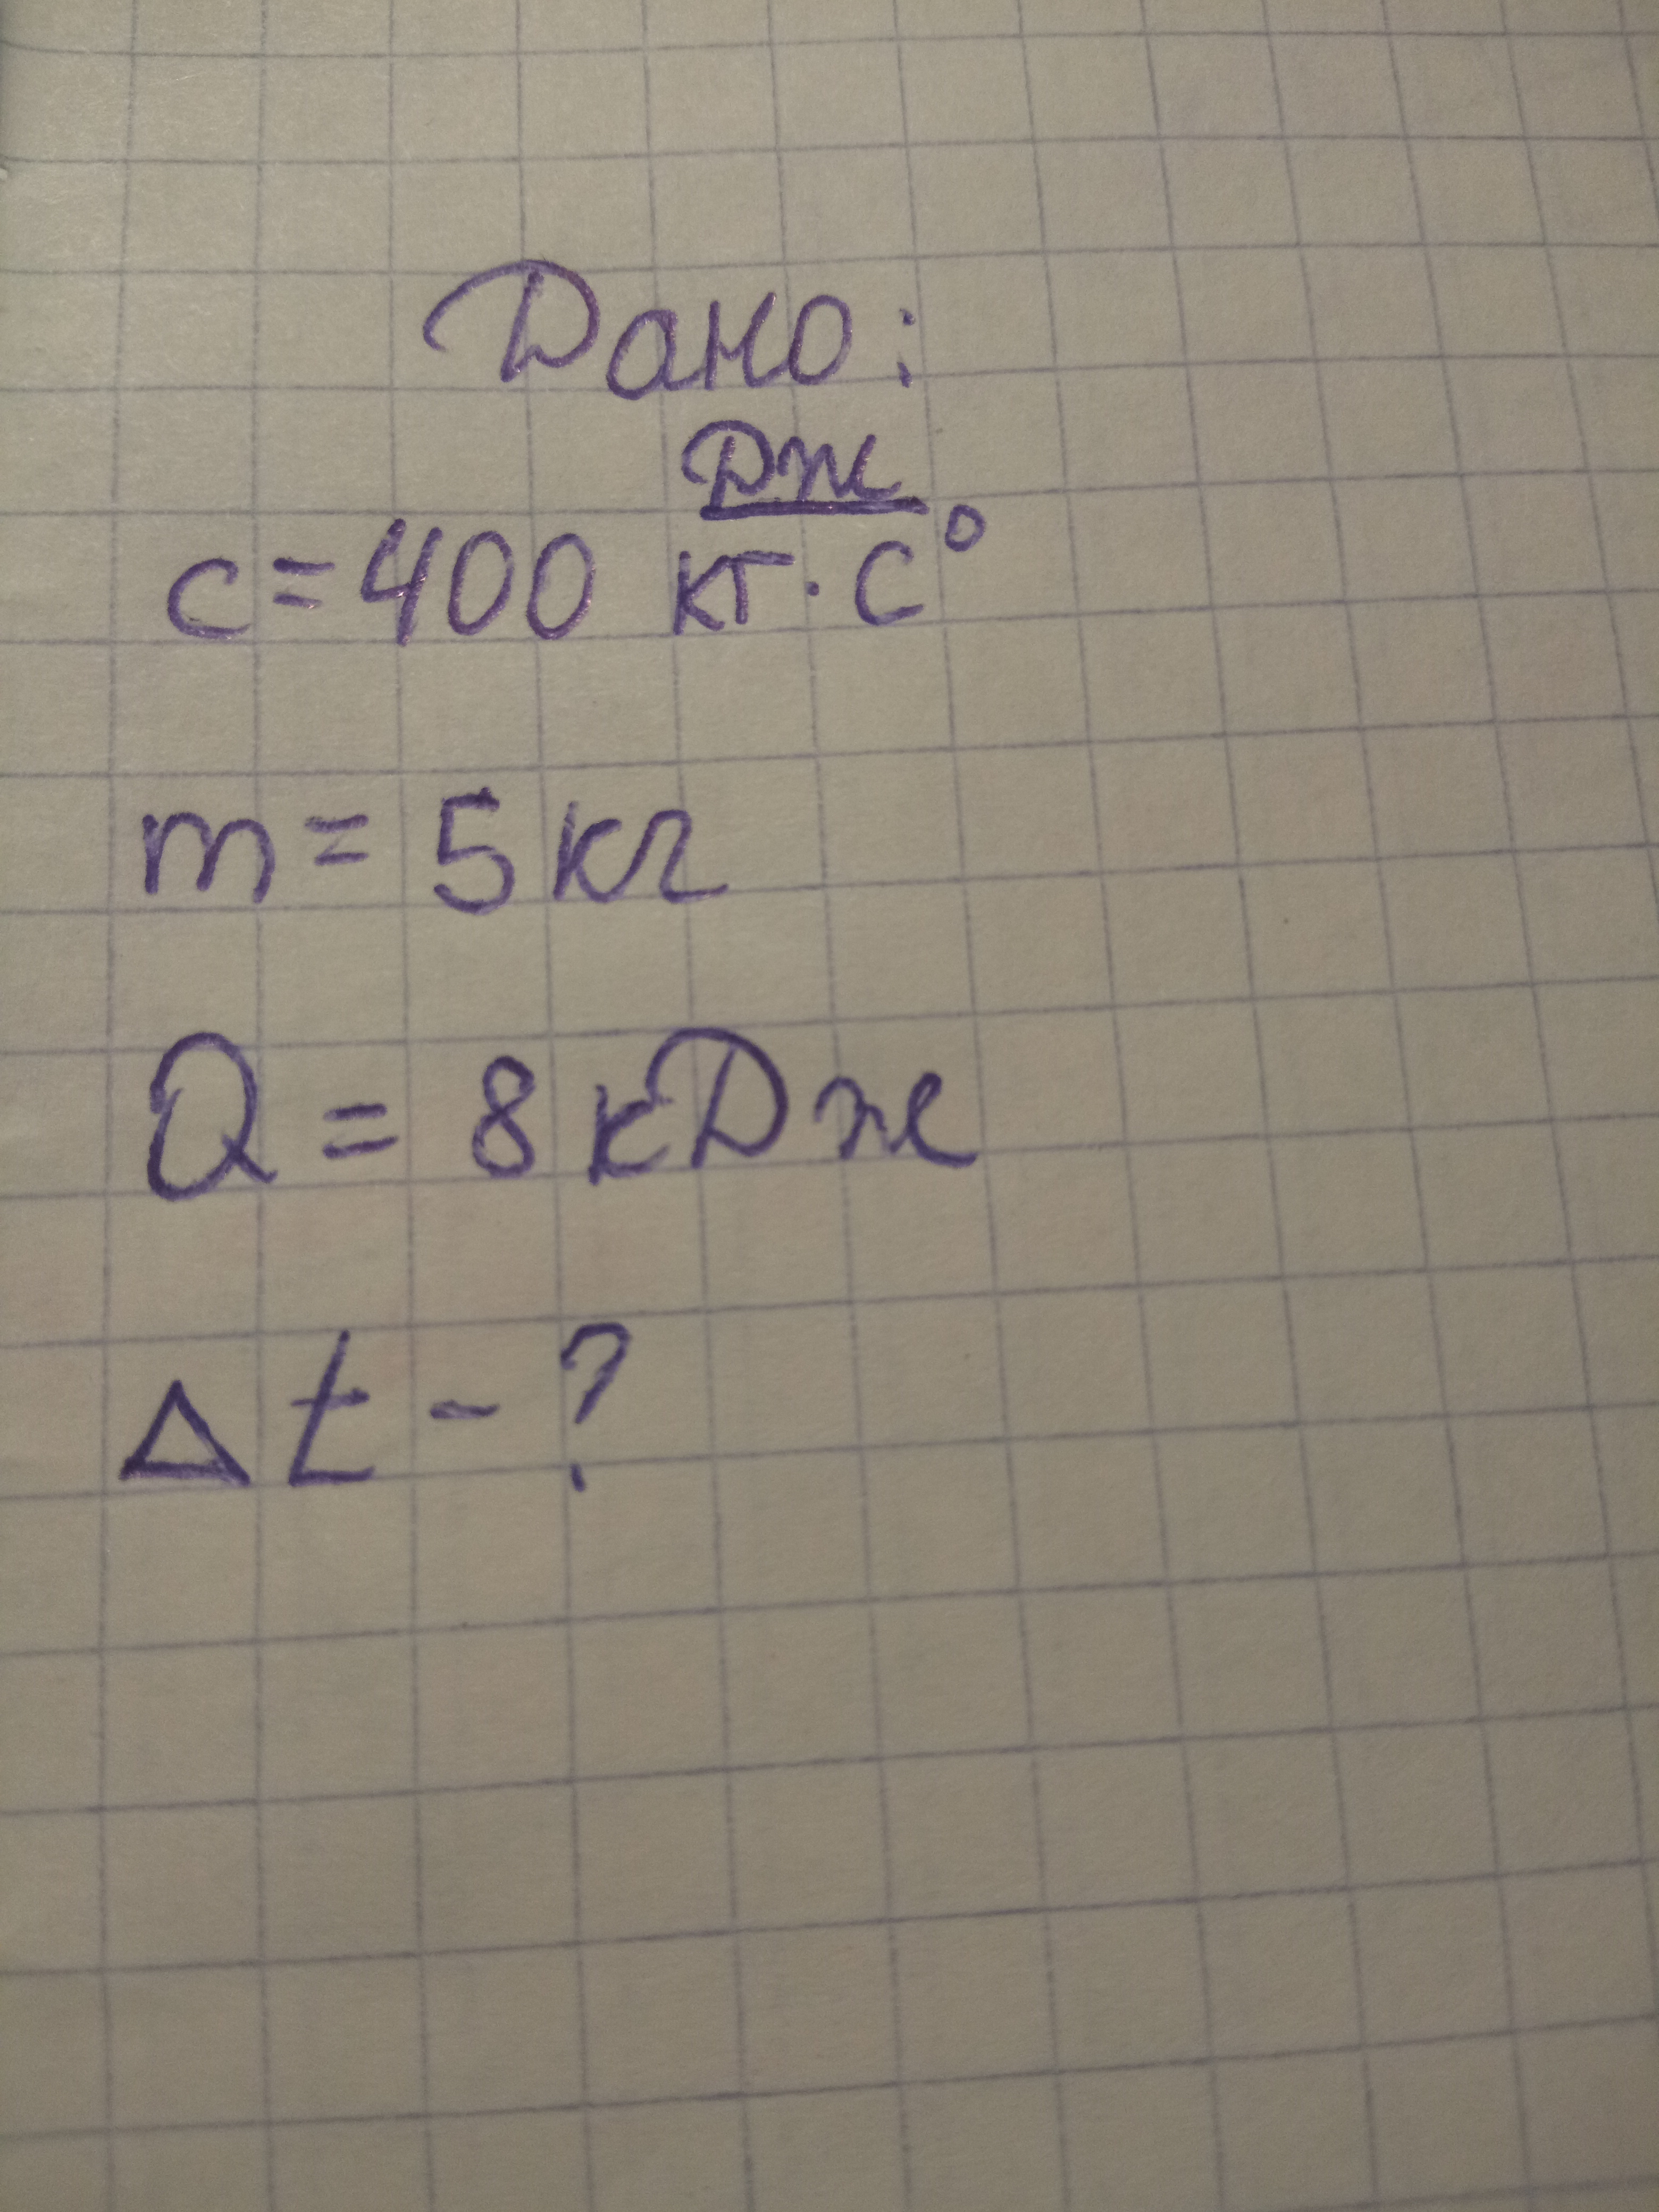 Дано:
c = 400 Дж/кг · C°
m = 5 кг
Q = 8 кДж
Δt - ?